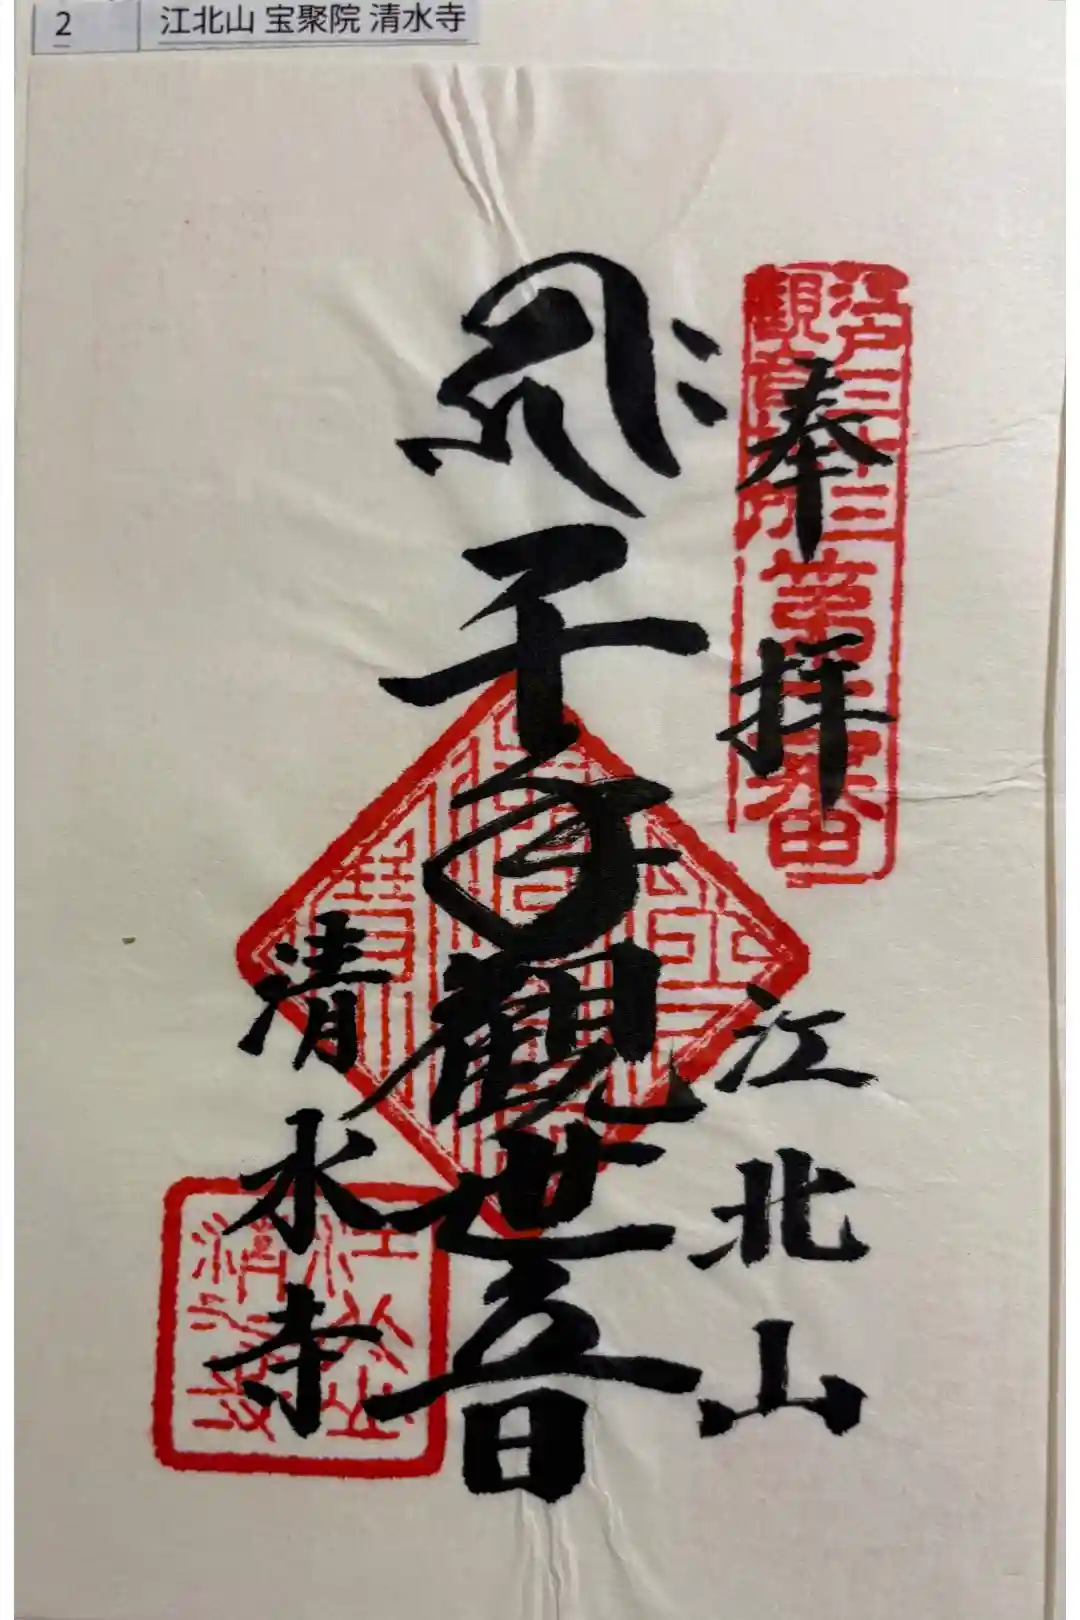 2
江北山 宝聚院 清水寺
江戸三十三
観音札所
第二番
奉拝
江北山
千手観世音
清水寺